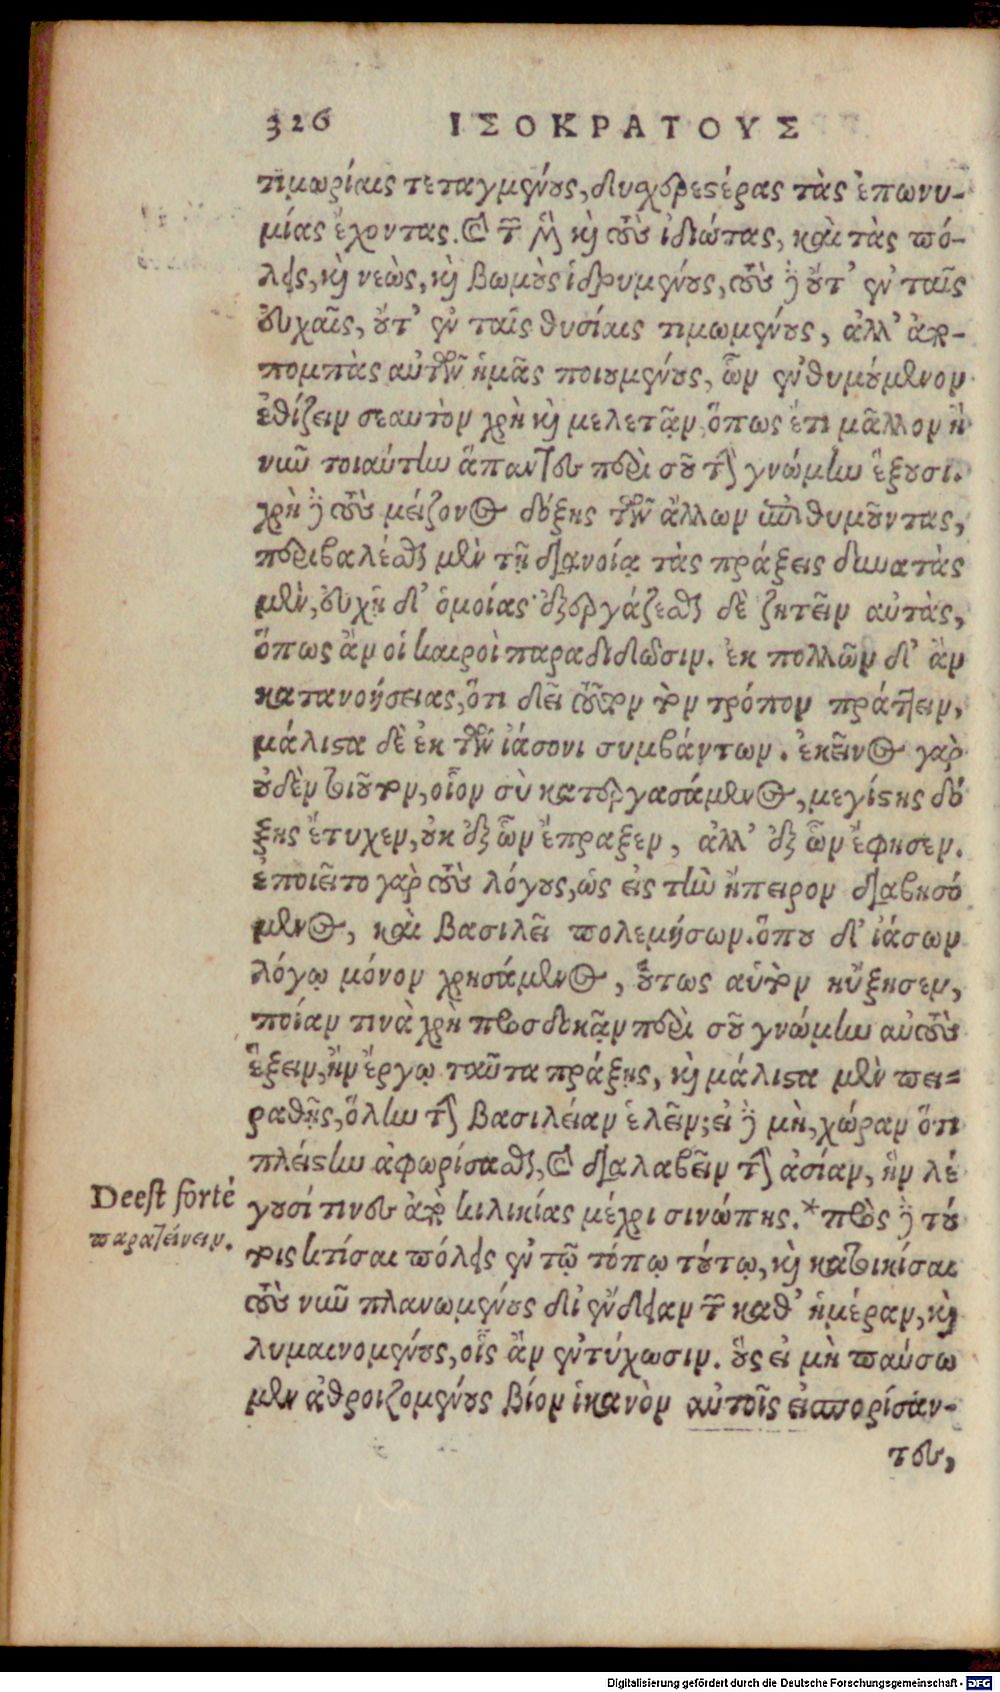 326 ΙΣΟΚΡΑΤΟΥΣ
τιμωρίαις τεταγμένους, δυσχερεστέρας τὰς ἐπωνυ-
μίας ἔχοντας. καὶ τῶν μὲν καὶ τοὺς ἰδιώτας, καὶ τὰς πό-
λεις, καὶ νεὼς, καὶ βωμοὺς ἱδρυμένους, τοὺς δὲ οὔτ' ἐν ταῖς
εὐχαῖς, οὔτ' ἐν ταῖς θυσίαις τιμωμένους, ἀλλ' ἀπο-
πομπὰς αὐτῶν ἡμᾶς ποιουμένους, ὧν ἐνθυμούμενον
ἐθίζειν σεαυτὸν χρὴ καὶ μελετᾷν, ὅπως ἔτι μᾶλλον ἢ
νῦν τοιαύτην ἅπαντες περὶ σοῦ τὴν γνώμην ἕξουσι.
χρὴ δὲ τοὺς μείζονος δόξης τῶν ἄλλων ἐπιθυμοῦντας,
περιβαλέσθαι μὲν τῇ διανοίᾳ τὰς πράξεις δυνατὰς
μὲν, εὐχῇ δ' ὁμοίας· ἐξεργάζεσθαι δὲ ζητεῖν αὐτὰς,
ὅπως ἂν οἱ καιροὶ παραδιδῶσιν. ἐκ πολλῶν δ' ἂν
κατανοήσειας, ὅτι δεῖ τοῦτον τὸν τρόπον πράττειν,
μάλιστα δὲ ἐκ τῶν ἰάσονι συμβάντων. ἐκεῖνος γὰρ
οὐδὲν τοιοῦτον, οἷον σὺ κατεργασάμενος, μεγίστης δό
ξης ἔτυχεν, οὐκ ἐξ ὧν ἔπραξεν, ἀλλ' ἐξ ὧν ἔφησεν.
ἐποιεῖτο γὰρ τοὺς λόγους, ὡς εἰς τὴν ἤπειρον διαβησό
μενος, καὶ βασιλεῖ πολεμήσων. ὅπου δ' ἰάσων
λόγῳ μόνον χρησάμενος, οὕτως αὑτὸν ηὔξησεν,
ποίαν τινὰ χρὴ προσδοκᾷν περὶ σοῦ γνώμην αὐτοὺς
ἕξειν, ἢν ἔργῳ ταῦτα πράξῃς, καὶ μάλιστα μὲν πει-
ραθῇς, ὅλην τὴν βασιλείαν ἑλεῖν; εἰ δὲ μὴ, χώραν ὅτι
πλείστην ἀφωρίσασθαι, καὶ διαλαβεῖν τὴν ἀσίαν, ἣν λέ
γουσί τινες ἀπὸ κιλικίας μέχρι σινώπης.* πρὸς δὲ τού
τοις κτίσαι πόλεις ἐν τῷ τόπῳ τούτῳ, καὶ κατοικίσαι
τοὺς νῦν πλανωμένους δι' ἔνδειαν τῶν καθ' ἡμέραν, καὶ
λυμαινομένους, οἷς ἂν ἐντύχωσιν. οὓς εἰ μὴ παύσω
μεν ἀθροιζομένους βίον ἱκανὸν αὐτοῖς εἰσπορίσαν-
τες,
Deest fortè
παρατείνειν.
Digitalisierung gefördert durch die Deutsche Forschungsgemeinschaft - DFG